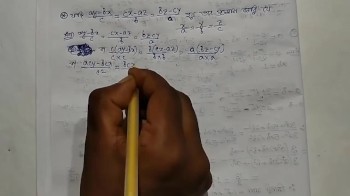 যদি (ay-bx)/c = (cx-az)/b = (bz-cy)/a হয় তবে প্রমাণ করো যে
x/a = y/b = z/c
(ay-bx)/c = (cx-az)/b = (bz-cy)/a
বা c(ay-bx)/(c×c) = b(cx-az)/(b×b) = a(bz-cy)/(a×a)
বা (acy-bcx)/c2 = bc